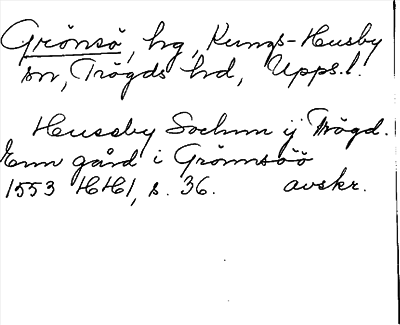 Grönsö, hg, Kungs-Husby
sn, Trögds hd, Upps.l.
Hussby Sochnn ij Trögd.
Enn gård i Grönnsöö
1553 HH1, s. 36. avskr.